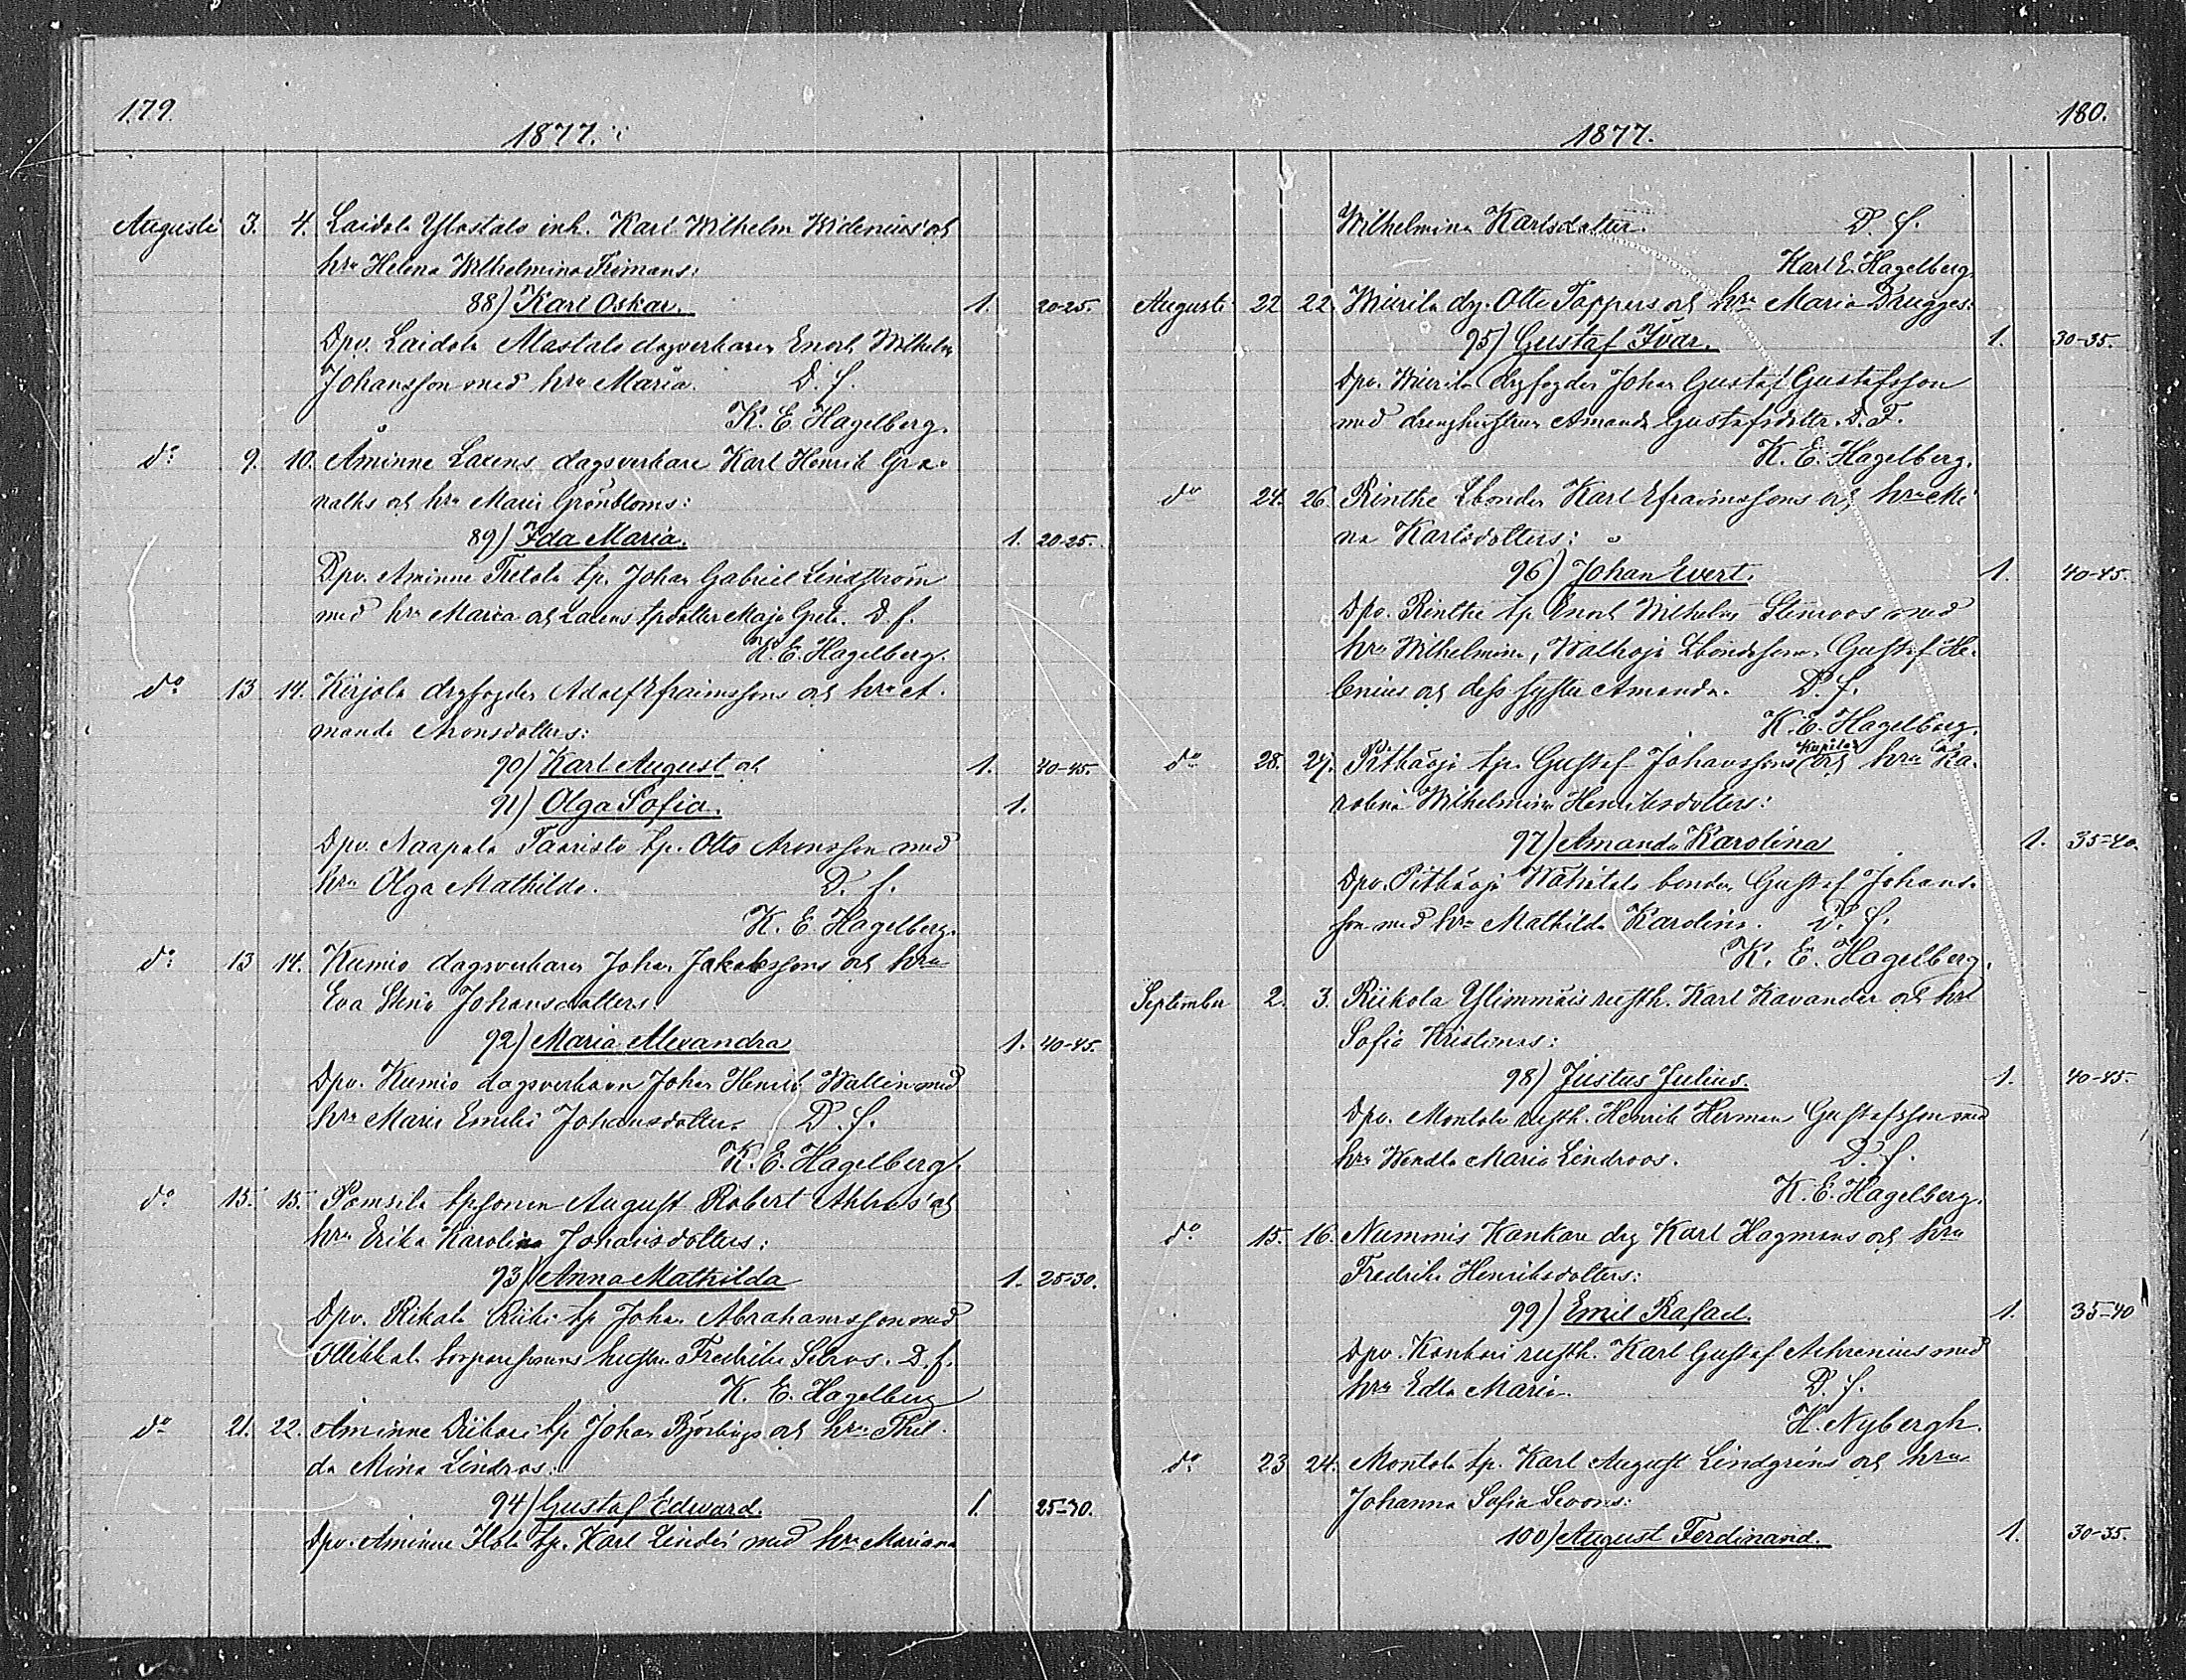 179.
1877.
Augusti 3. 4. Laidola Ylostalo inh. Karl Wilhelm Widenius' och
hru Helena Wilhelmina Frimans:
88) Karl Oskar. 1. 20-25.
Dpv. Laidola Alastalo dagverkaren Enoch Wilhelm
Johansson med hru Maria. D. f.
K. E. Hagelberg.
do 9. 10. Åminne Laurens dagsverkare Karl Henrik Gra-
naths och hru Maria Grönbloms:
89) Ida Maria. 1. 20-25.
Dpv. Åminne Tretola tp. Johan Gabriel Lindström
med hru Maria och Laurens tpdotter Maja Greta. D. f.
K. E. Hagelberg.
do 13 14. Kirjola drgfogden Adolf Efraimssons och hru A-
manda Aronsdotters:
90) Karl August och 1. 40-45.
91) Olga Sofia. 1.
Dpv. Naapala Taaristo tp. Otto Aronsson med
hru Olga Mathilda. D. f.
K. E. Hagelberg.
do 13 14. Kumio dagsverkaren Johan Jakobssons och hru
Eva Stina Johansdotters:
92) Maria Alexandra 1. 40-45.
Dpv. Kumio dagsverkaren Johan Henrik Wallin med
hru Maria Emilia Johansdotter. D. f.
K. E. Hagelberg.
do 15. 15. Pomsila tpsonen August Robert Ahlros' och
hru Erika Karolina Johansdotters:
93) Anna Mathilda 1. 25-30.
Dpv. Rikala Riihi tp Johan Abrahamsson med
Ollikkala torparesonens hustru Fredrika Selros. D. f.
K. E. Hagelberg
do 21. 22. Åminne Riihari tp Johan Björkbergs och hru Thil-
da Mina Lindros:
94) Gustaf Edward. 1. 25-30.
Dpv. Åminne Flola tp. Karl Lindé med hru Mariana
180.
1877.
Wilhelmina Karlsdotter. D. f.
Karl E. Hagelberg.
Augusti 22 22. Wiurila drg. Otto Tappers och hru Maria Drugges:
95) Gustaf Ivar. 1. 30-35.
Dpv. Wiurila drgfogden Johan Gustaf Gustafsson
med drenghustrun Amanda Gustafsdotter. D. F.
K. E. Hagelberg.
do 24. 26. Rinthe Lbonden Karl Efraimssons och hru Mi
na Karlsdotters:
96) Johan Evert. 1. 40-45.
Dpv. Rinthe tp Enoch Wilhelm Stenroos med
hru Wilhelmina, Walhoja Lbondeson Gustaf He-
lenius och dess syster Amanda. D. f.
K. E. Hagelberg.
do 28. 29. Pitkäoja tp. Gustaf Johanssons och hru Ka-
rolina Wilhelmina Henriksdotters:
97) Amanda Karolina 1. 35-40.
Dpv. Pitkäoja Wähätalo bonden Gustaf Johans-
son med hru Mathilda Karolina. D. f.
K. E. Hagelberg.
September 2. 3. Riikola Ylimmäis rusth. Karl Kavander och hru
Sofia Kristinas:
98) Justus Julius. 1. 40-45.
Dpv. Montola rusth. Henrik Herman Gustafsson med
hru Wendla Maria Lindroos. D. f.
K. E. Hagelberg.
do 15. 16. Nummis Kankare drg Karl Hagmans och hru
Fredrika Henriksdotters:
99) Emil Rafael. 1. 35-40
Dpv. Kankari rusth. Karl Gustaf Achrenius med
hru Edla Maria. D. f.
K. Nybergh.
do 23 24. Montola tp. Karl August Lindgrens och hru
Johanna Sofia Levons:
100) August Ferdinand. 1. 30-35.